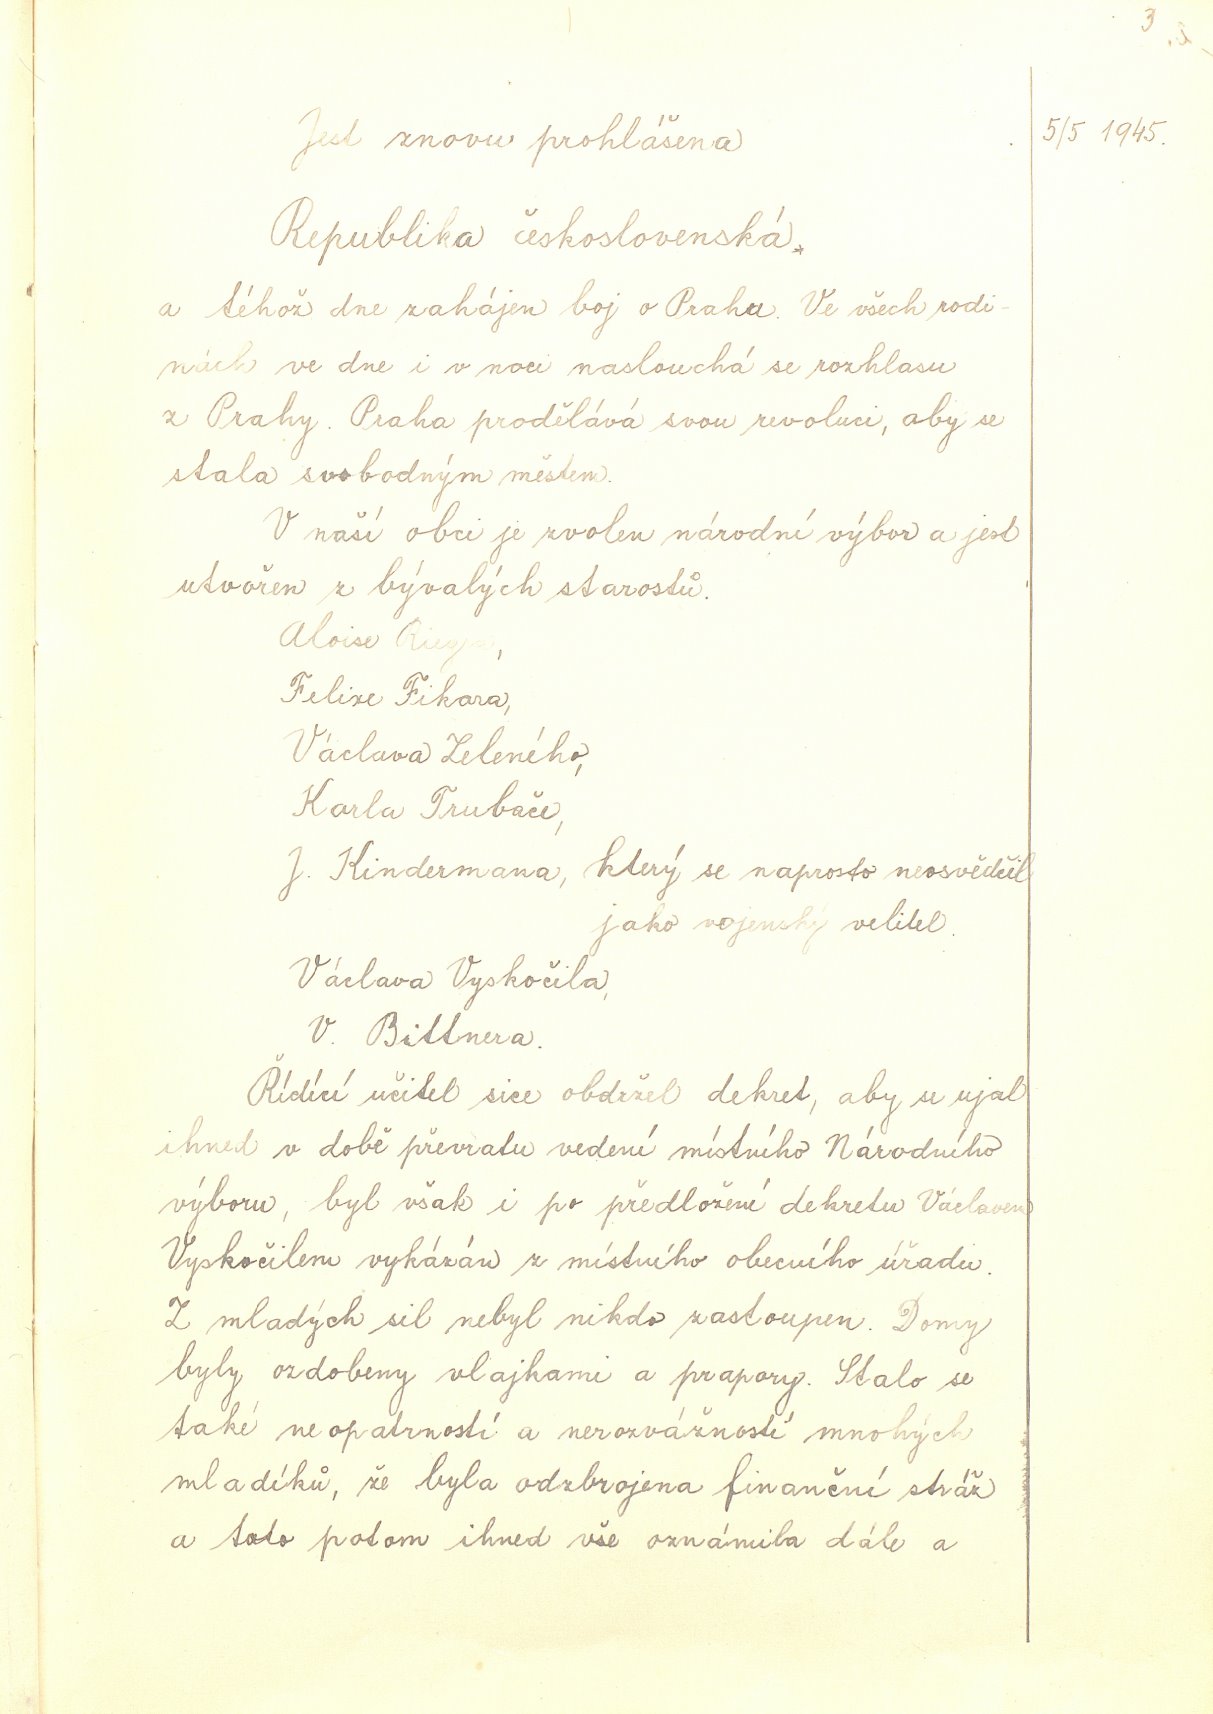 3
Jest znovu prohlášena
5/5 1945.
Republika československá.
a téhož dne zahájen boj o Prahu. Ve všech rodi-
nách ve dne i v noci naslouchá se rozhlasu
z Prahy. Praha prodělává svou revoluci, aby se
stala svobodným městem.
V naší obci je zvolen národní výbor a jest
utvořen z bývalých starostů.
Aloise
Felixe Fikara,
Václava Zeleného,
Karla Trubače,
J. Kindermana, který se naprosto neosvědčil
jako vojenský velitel.
Václava Vyskočila,
V. Bittnera.
Řídící učitel sice obdržel dekret, aby se ujal
ihned v době převratu vedení místního Národního
výboru, byl však i po předložení dekretu Václavem
Vyskočilem vykázán z místního obecního úřadu.
Z mladých sil nebyl nikdo zastoupen. Domy
byly ozdobeny vlajkami a prapory. Stalo se
také neopatrností a nerozvážností mnohých
mladíků, že byla odzbrojena finanční stráž
a toto potom ihned vše oznámila dále a